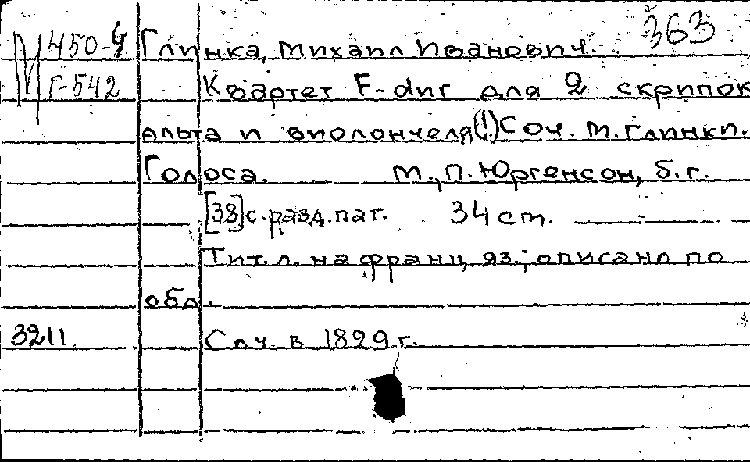 363
М 450-4 Глинка, Михаил Иванович.
Г-542 Квартет F-dur для 2 скрипок
альта и виолончеля(!) Соч. М. Глинки.
Голоса. М., П. Юргенсон, б.г.
[38] с. разд. паг. 34 cm.
Тит. л. на франц. яз.; описано по
обл.
3211. Соч. в 1829 г.